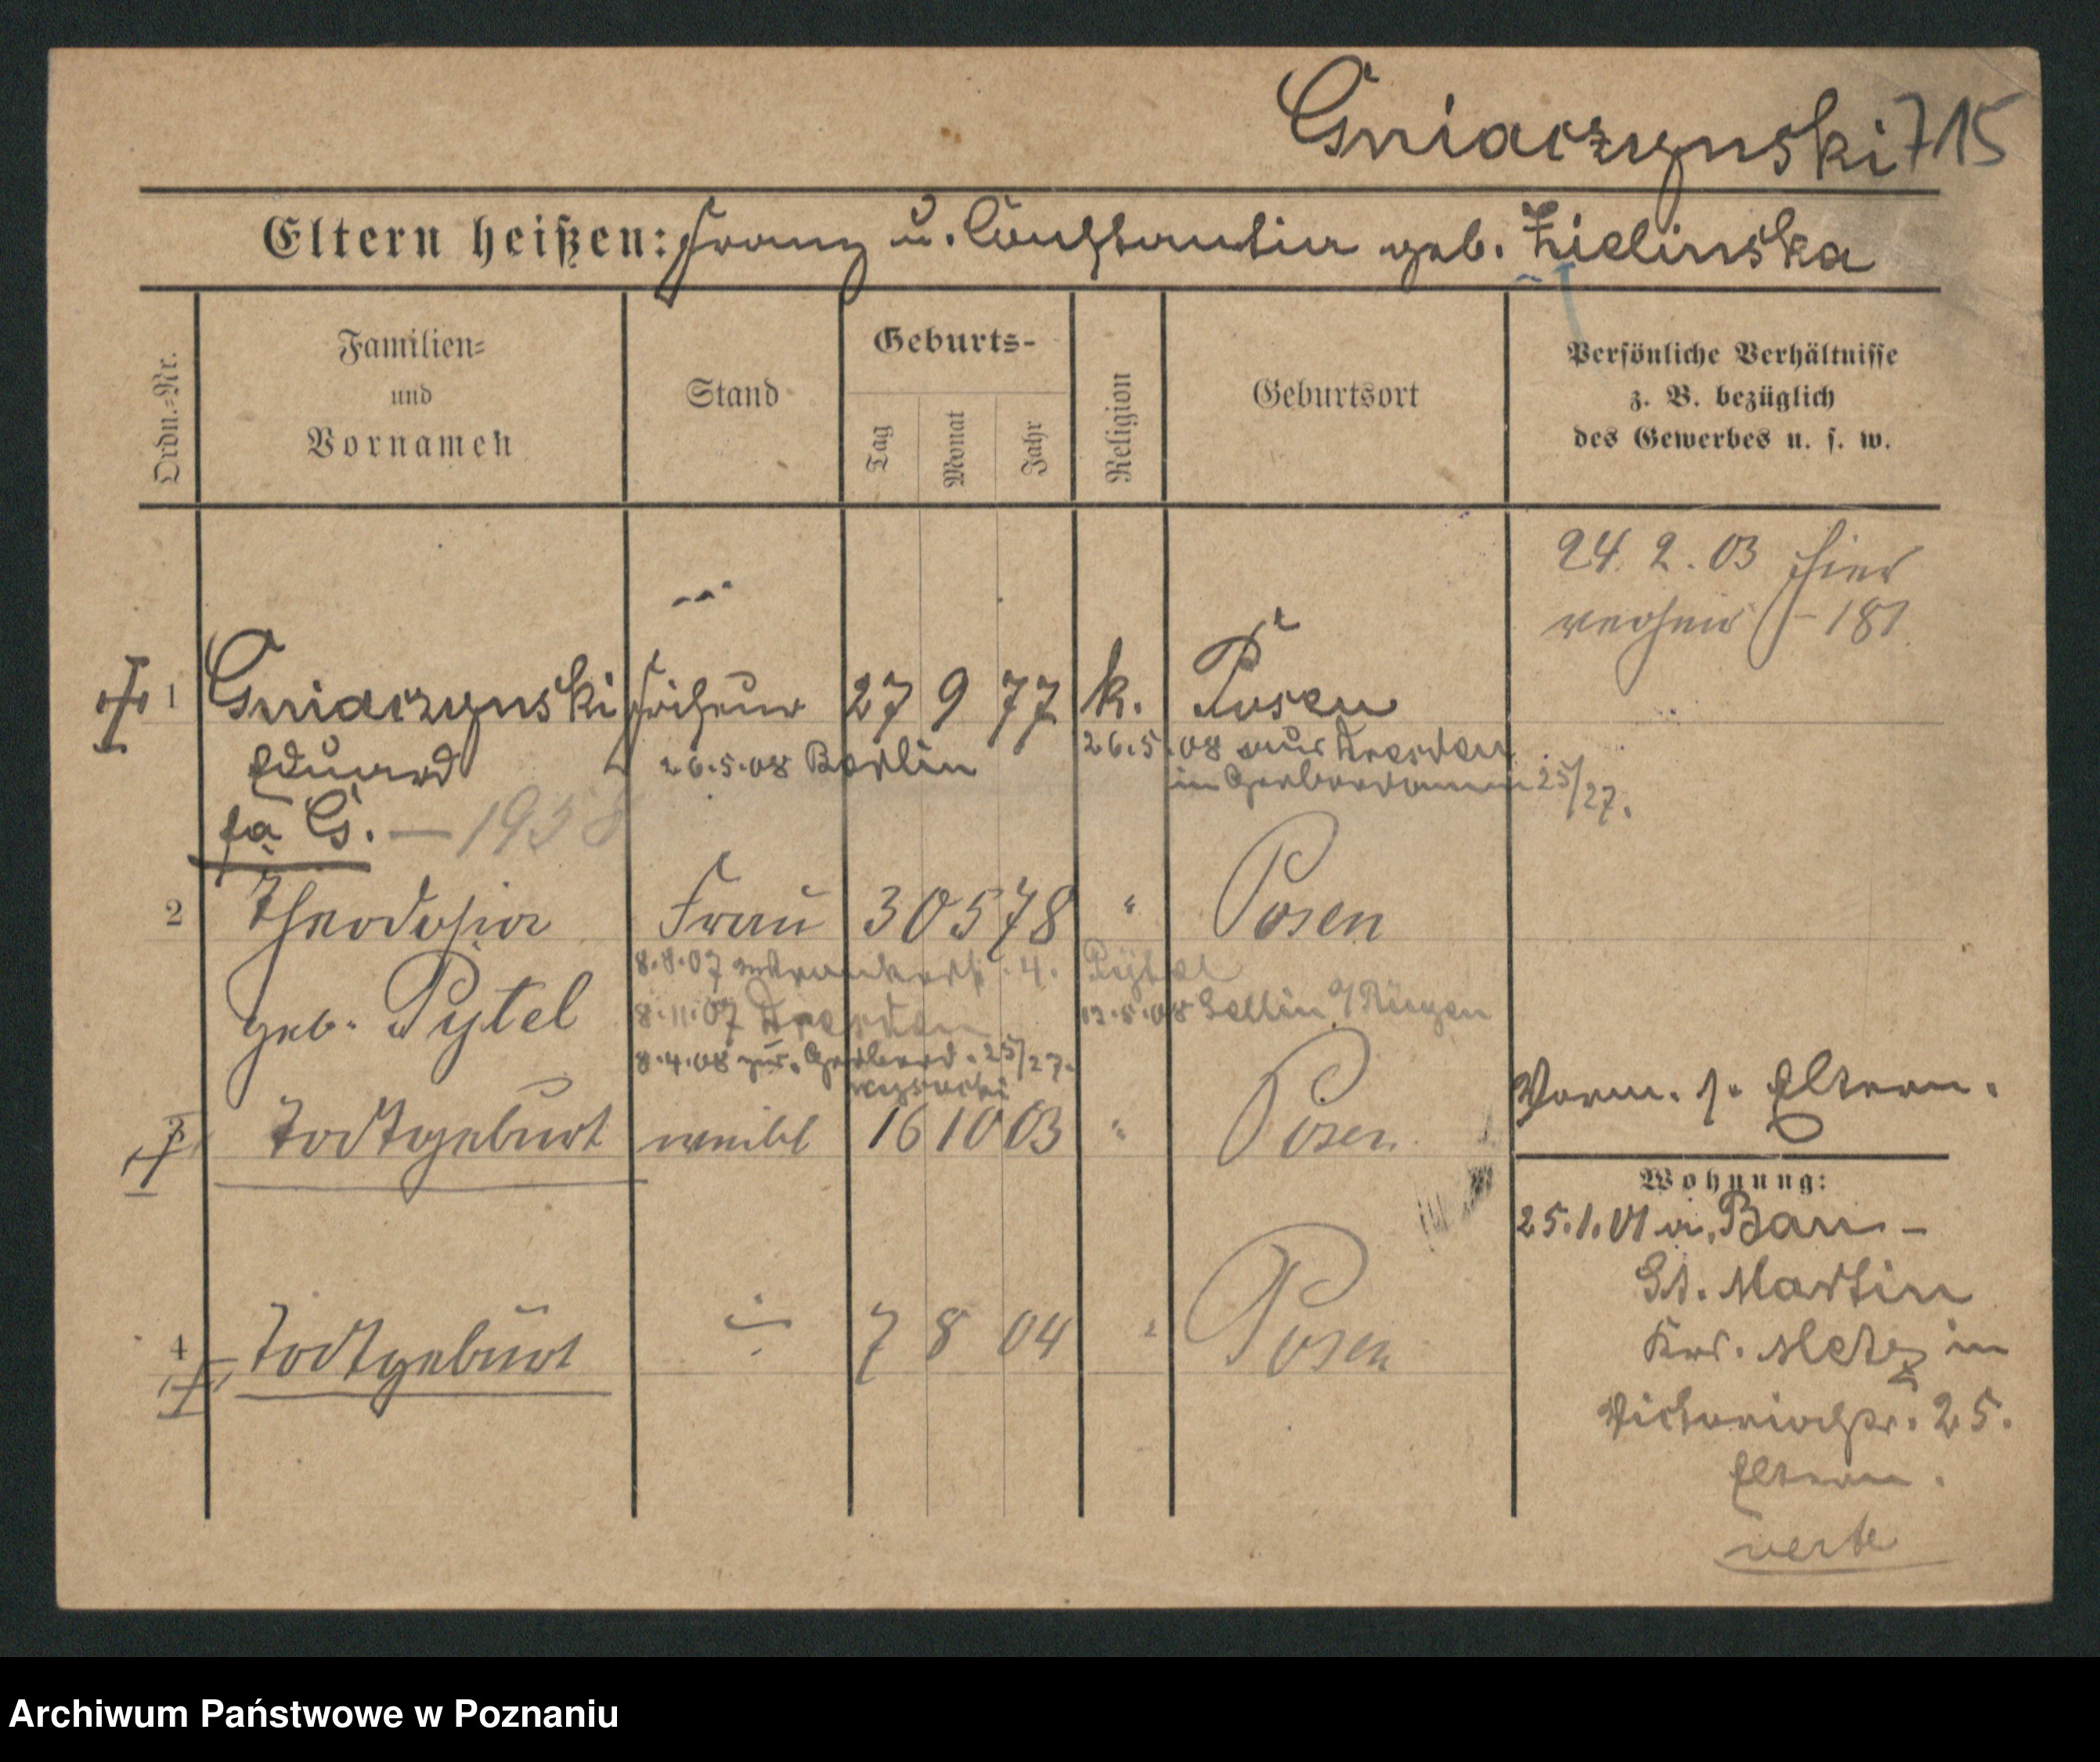 Gniaczynski 715
Eltern heißen: Franz u. Constantia geb. Zielinska
Ordn.=Nr.
Familien=
und
Vornamen
Stand
Geburts-
Tag
Monat
Jahr
Religion
Geburtsort
Persönliche Verhältnisse
z. B. bezüglich
des Gewerbes u. s. w.
24. 2. 03 hier
1 Gniaczynski Friseur 27 9 77 k. Posen
Eduard 26.5.08 Berlin 26.5.08 aus Dresden
in 25/27.
fa G. — 1938
2 Theodosia Frau 30 5 78 " Posen
8.8.07 4. Pytel
geb. Pytel 8.11.07 Dresden 13.5.08 Sellin a/Rügen
8.4.08 zur. 25/27.
3 Todtgeburt weibl 16 10 03 " Posen
Vorm. s. Eltern.
Wohnung:
25.1.01 a. Bau-
St. Martin
4 Todtgeburt 7 8 04 " Posen
Metz in
Victoriastr. 25.
Eltern.
verte
Archiwum Państwowe w Poznaniu